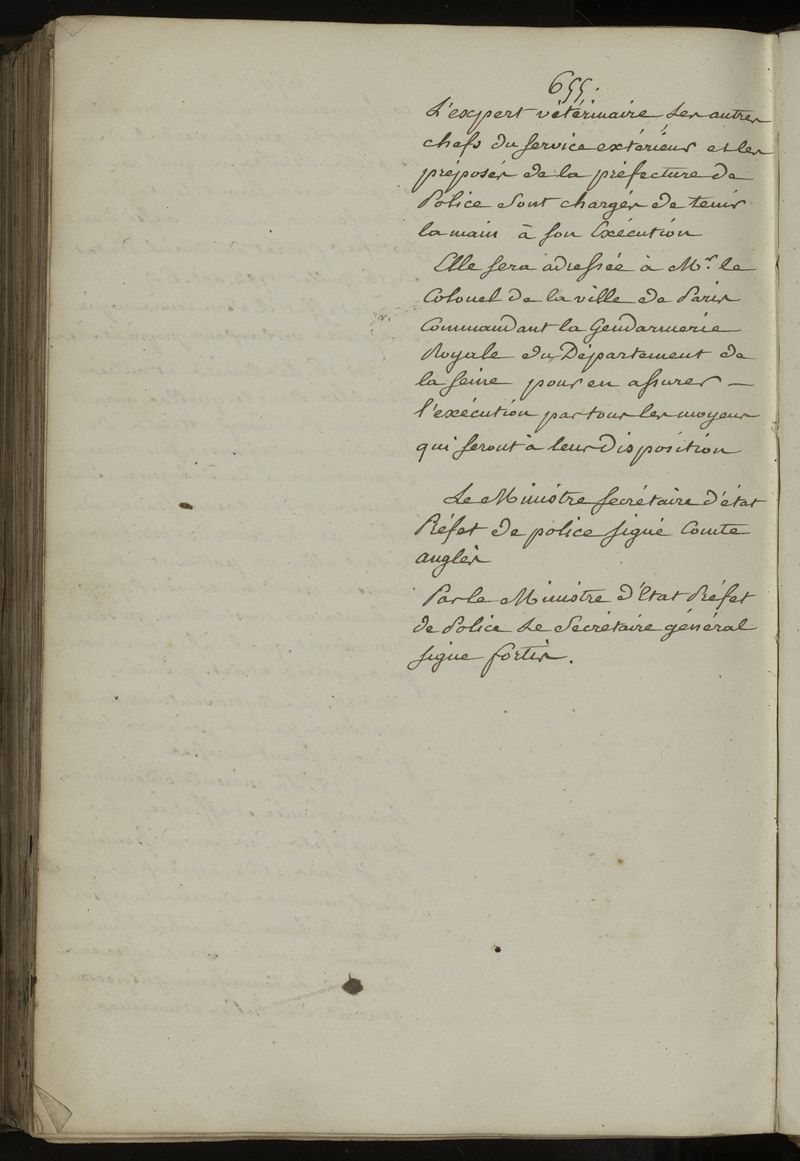 655.
L'expert vétérinaire, les autres
chefs du service extérieur et les
préposés de la préfecture de
Police sont chargés de tenir
la main à son Exécution
Elle sera adressée à Mr. le
Colonel de la ville de Paris
Commandant la Gendarmerie
Royale du Département de
la seine pour en assurer —
l'exécution par tous les moyens
qui seront à leur Disposition
Le Ministre secrétaire d'état
Préfet de police signé Comte
anglès
Par le Ministre d'Etat Préfet
de Police Le Secrétaire général
signe fortis.